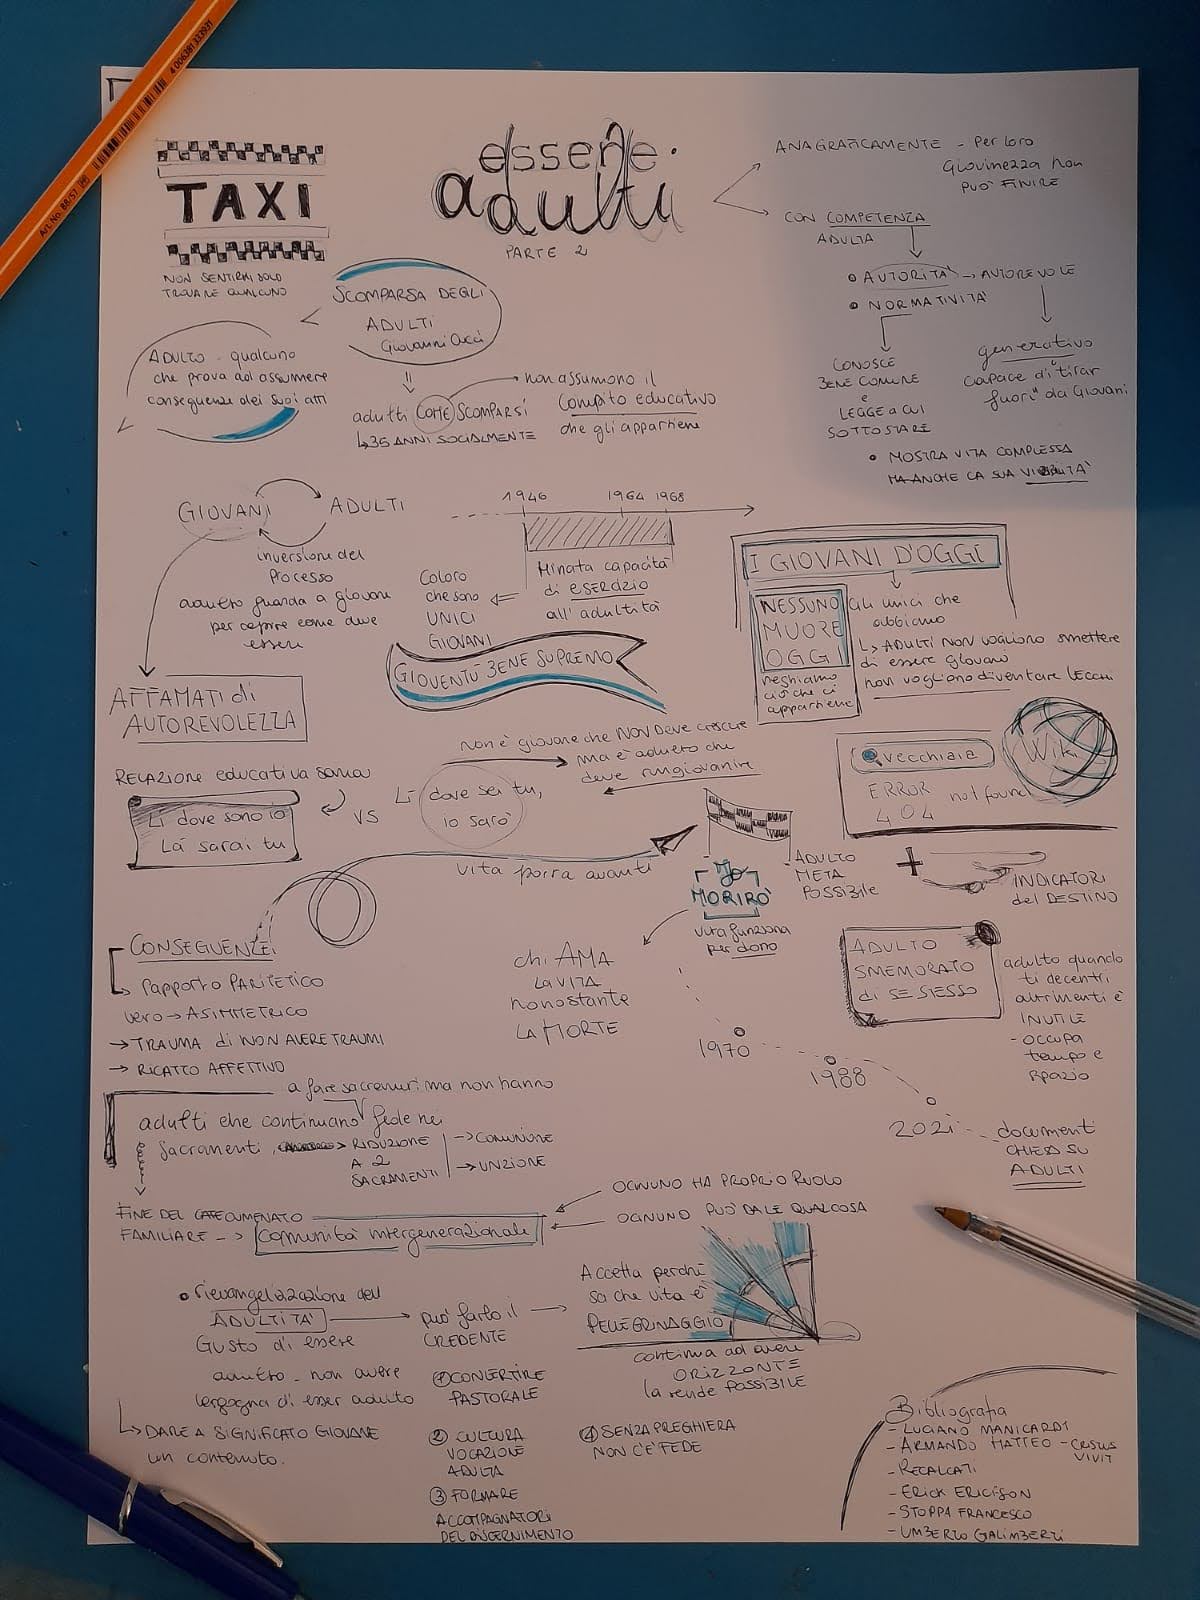 4 006381 333931
Art.No. 88/57
TAXI
NON SENTIRMI SOLO
TROVARE QUALCUNO
essere
adulti
PARTE 2
ANAGRAFICAMENTE - Per loro
Giovinezza non
PUO' FINIRE
CON COMPETENZA
ADULTA
AUTORITA' → AUTOREVOLE
NORMATIVITA'
CONOSCE
BENE COMUNE
e
LEGGE a CUI
SOTTOSTARE
generativo
capace di "tirar
fuori" da Giovani
MOSTRA VITA COMPLESSA
MA ANCHE LA SUA
SCOMPARSA DEGLI
ADULTI
Giovanni Cucci
ADULTO - qualcuno
che prova ad assumere
conseguenze dei suoi atti
adulti COME SCOMPARSI
↳ 35 ANNI SOCIALMENTE
non assumono il
compito educativo
che gli appartiene
GIOVANI ADULTI
inversione del
processo
adulto guarda a giovane
per capire come deve
essere
AFFAMATI di
AUTOREVOLEZZA
1946 1964 1968
Minata capacità
di ESERCIZIO
all' adultità
Coloro
che sono
UNICI
GIOVANI
GIOVENTU' BENE SUPREMO
I GIOVANI D'OGGI
NESSUNO
MUORE
OGGI
neghiamo
ciò che ci
appartiene
Gli unici che
abbiamo
↳ ADULTI NON vogliono smettere
di essere giovani
non vogliono diventare VECCHI
non è giovane che NON DEVE crescere
ma è adulto che
deve ringiovanire
RELAZIONE educativa sana
Lì dove sono io
Là sarai tu
VS
Lì dove sei tu,
io sarò
vita porta avanti
vecchiaia
ERROR
404 not found
Wiki
Io
MORIRO'
vita funziona
per dono
ADULTO
META
POSSIBILE
+
INDICATORI
del DESTINO
ADULTO
SMEMORATO
di SE STESSO
adulto quando
ti decentri
altrimenti è
INUTILE
- OCCUPA
tempo e
spazio
chi AMA
LA VITA
nonostante
LA MORTE
1970
1988
2021
documenti
CHIESA SU
ADULTI
CONSEGUENZE:
rapporto PARITETICO
vero → ASIMMETRICO
→ TRAUMA di NON AVERE TRAUMI
→ RICATTO AFFETTIVO
a fare sacramenti ma non hanno
adulti che continuano fede nei
sacramenti
→ RIDUZIONE
A 2
SACRAMENTI
→ COMUNIONE
→ UNZIONE
FINE DEL CATECUMENATO
FAMILIARE -> comunità intergenerazionale
OGNUNO HA PROPRIO RUOLO
OGNUNO PUO' DARE QUALCOSA
rievangelizzazione dell'
ADULTITA'
Gusto di essere
adulto - non avere
vergogna di esser adulto
↳ DARE A SIGNIFICATO GIOVANE
un contenuto.
può farlo il
CREDENTE
Accetta perché
sa che vita è
PELLEGRINAGGIO
continua ad avere
ORIZZONTE
la rende possibile
① CONVERTIRE
PASTORALE
② CULTURA
VOCAZIONE
ADULTA
③ FORMARE
ACCOMPAGNATORI
DEL DISCERNIMENTO
④ SENZA PREGHIERA
NON C'E' FEDE
Bibliografia
- LUCIANO MANICARDI
- ARMANDO MATTEO -
VIVIT
- RECALCATI
- ERICK ERICSON
- STOPPA FRANCESCO
- UMBERTO GALIMBERTI